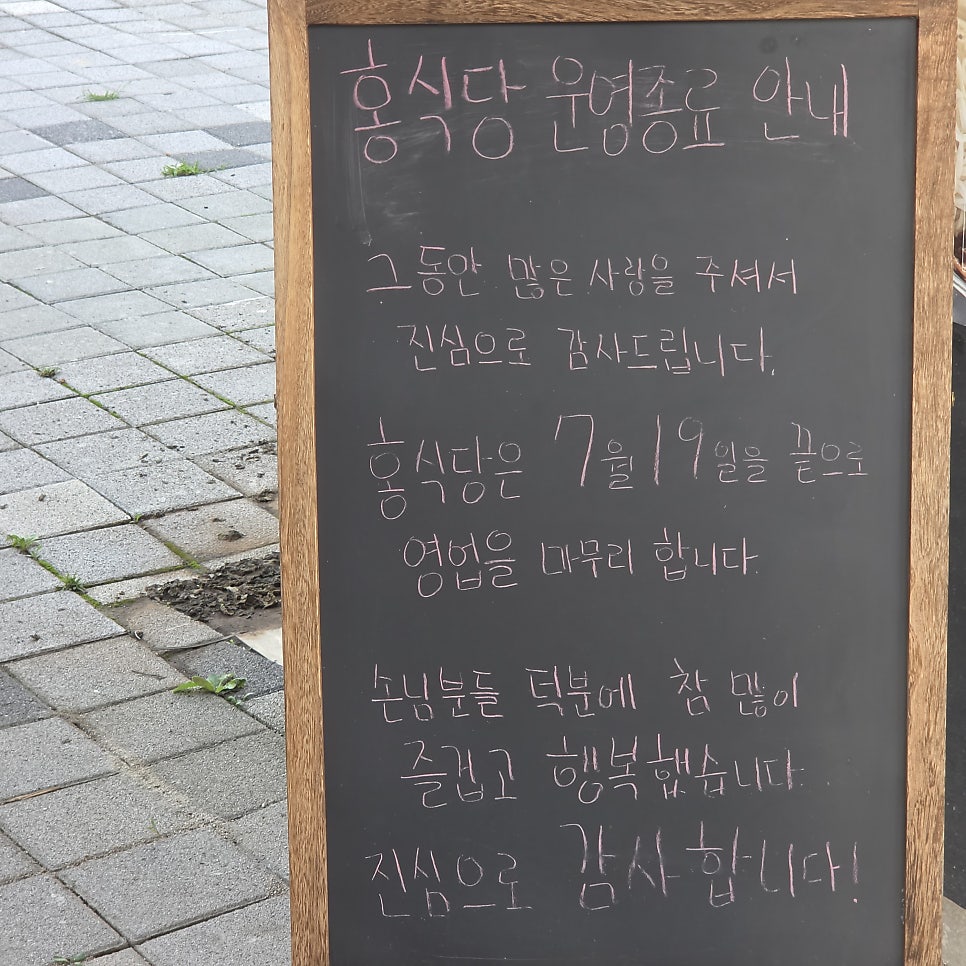 홍식당 운영종료 안내
그동안 많은 사랑을 주셔서
진심으로 감사드립니다.
홍식당은 7월 19일을 끝으로
영업을 마무리 합니다.
손님분들 덕분에 참 많이
즐겁고 행복했습니다.
진심으로 감사합니다!